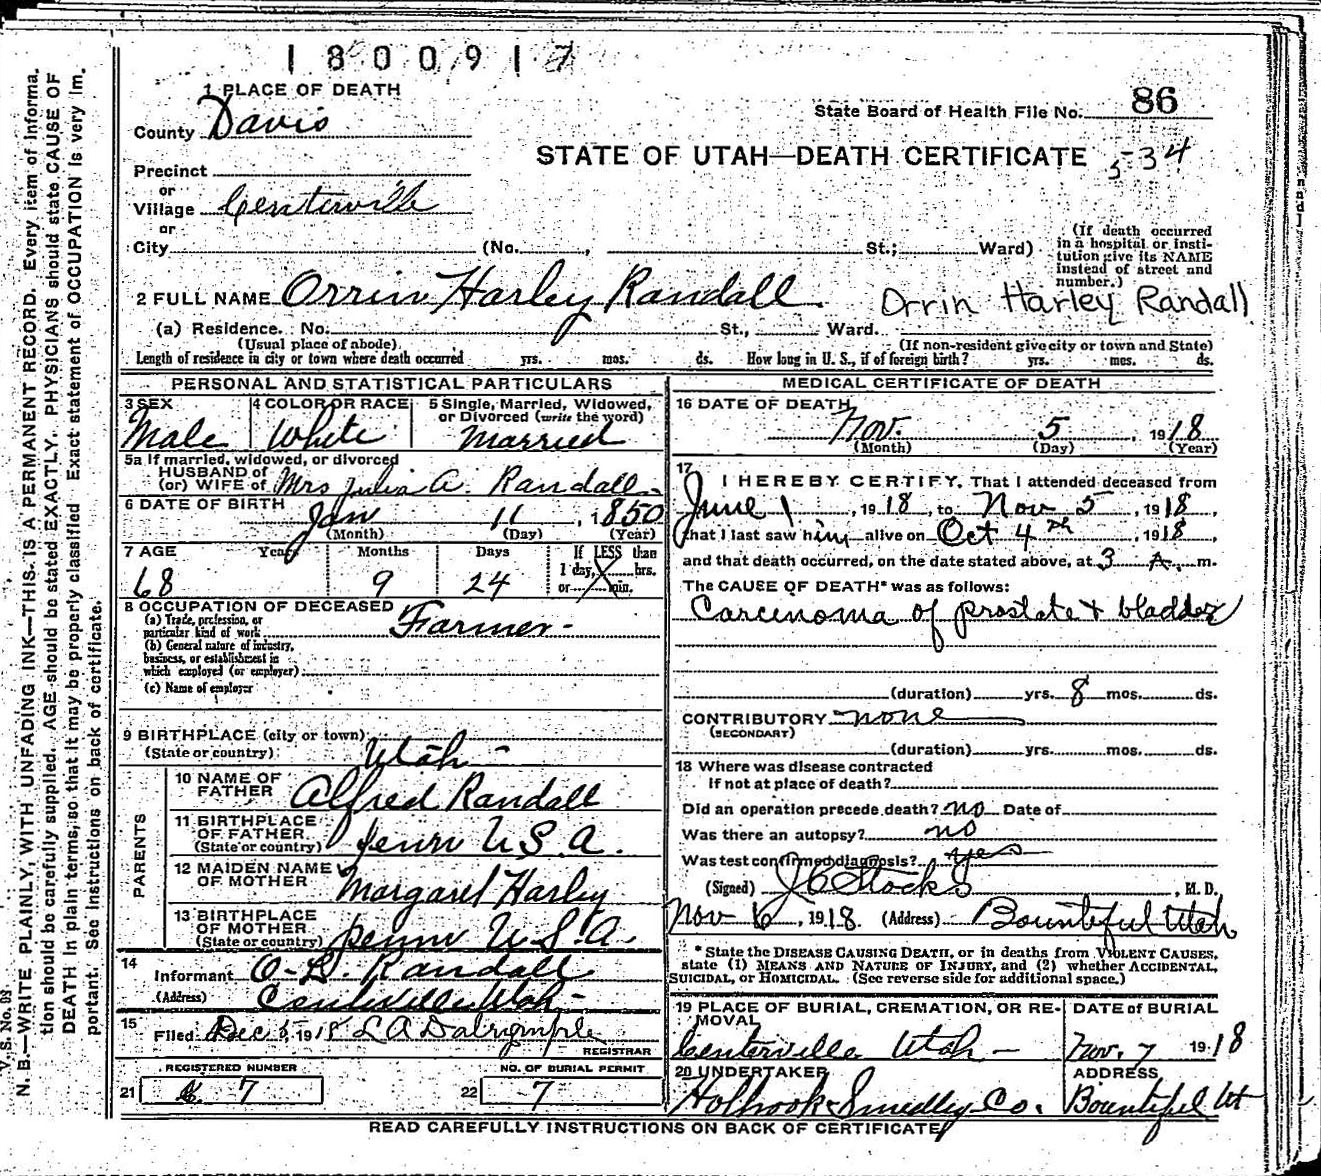 1800917
1 PLACE OF DEATH
County Davis
State Board of Health File No. 86
STATE OF UTAH—DEATH CERTIFICATE 534
Precinct
or
Village Centerville
or
City (No. , St.; Ward)
(If death occurred in a hospital or insti-
tution give its NAME
instead of street and
number.)
2 FULL NAME Orrin Harley Randall. Orrin Harley Randall
(a) Residence. No. St., Ward.
(Usual place of abode) (If non-resident give city or town and State)
Length of residence in city or town where death occurred yrs. mos. ds. How long in U. S., if of foreign birth? yrs. mos. ds.
PERSONAL AND STATISTICAL PARTICULARS
3 SEX Male
4 COLOR OR RACE White
5 Single, Married, Widowed,
or Divorced (write the word)
Married
5a If married, widowed, or divorced
HUSBAND of
(or) WIFE of Mrs Julia A. Randall
6 DATE OF BIRTH Jan 11, 1850
(Month) (Day) (Year)
7 AGE Years Months Days If LESS than
1 day, hrs.
or min.
68 9 24
8 OCCUPATION OF DECEASED
(a) Trade, profession, or
particular kind of work Farmer
(b) General nature of industry,
business, or establishment in
which employed (or employer)
(c) Name of employer
9 BIRTHPLACE (city or town)
(State or country) Utah
PARENTS
10 NAME OF
FATHER Alfred Randall
11 BIRTHPLACE
OF FATHER
(State or country) Penn U.S.A.
12 MAIDEN NAME
OF MOTHER Margaret Harley
13 BIRTHPLACE
OF MOTHER
(State or country) Penn U.S.A.
14
Informant O. L. Randall
(Address) Centerville Utah
15
Filed Dec 5, 1918 L A Dalrymple
REGISTRAR
REGISTERED NUMBER
21 7
NO. OF BURIAL PERMIT
22 7
MEDICAL CERTIFICATE OF DEATH
16 DATE OF DEATH
Nov. 5, 1918
(Month) (Day) (Year)
17
I HEREBY CERTIFY, That I attended deceased from
June 1, 1918, to Nov 5, 1918,
that I last saw him alive on Oct 4th, 1918,
and that death occurred, on the date stated above, at 3 A. m.
The CAUSE OF DEATH* was as follows:
Carcinoma of prostate + bladder
(duration) yrs. 8 mos. ds.
CONTRIBUTORY none
(SECONDARY)
(duration) yrs. mos. ds.
18 Where was disease contracted
if not at place of death?
Did an operation precede death? no Date of
Was there an autopsy? no
Was test confirmed diagnosis? yes
(Signed) J C Stocks, M. D.
Nov 6, 1918. (Address) Bountiful Utah
*State the DISEASE CAUSING DEATH, or in deaths from VIOLENT CAUSES,
state (1) MEANS AND NATURE OF INJURY, and (2) whether ACCIDENTAL,
SUICIDAL, or HOMICIDAL. (See reverse side for additional space.)
19 PLACE OF BURIAL, CREMATION, OR RE-
MOVAL
Centerville Utah
DATE of BURIAL
Nov. 7 1918
20 UNDERTAKER
Holbrook-Smedley Co.
ADDRESS
Bountiful Ut
READ CAREFULLY INSTRUCTIONS ON BACK OF CERTIFICATE
N. B.—WRITE PLAINLY, WITH UNFADING INK—THIS IS A PERMANENT RECORD. Every item of Informa-
tion should be carefully supplied. AGE should be stated EXACTLY. PHYSICIANS should state CAUSE OF
DEATH in plain terms, so that it may be properly classified. Exact statement of OCCUPATION is very im-
portant. See instructions on back of certificate.